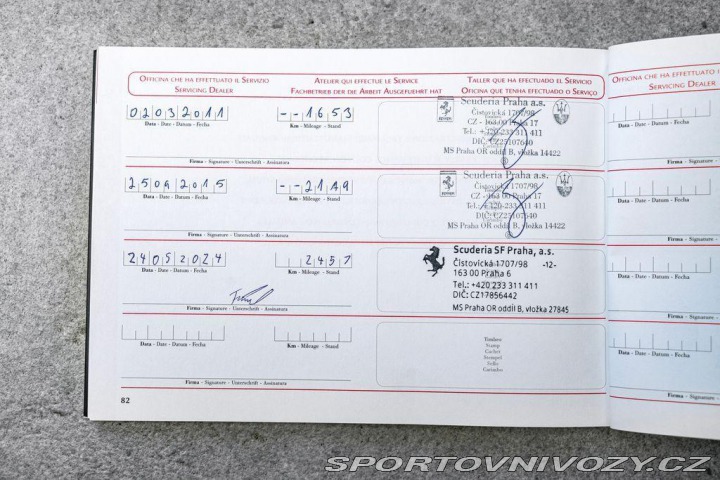 Officina che ha effettuato il Servizio
Servicing Dealer
Atelier qui effectue le Service
Fachbetrieb der die Arbeit Ausgefuehrt hat
Taller que ha efectuado el Servicio
Oficina que tenha efectuado o Serviço
02032011
--1653
Data - Date - Datum - Fecha
Km - Mileage - Stand
Firma - Signature - Unterschrift - Assinatura
Scuderia Praha a.s.
Čistovická 1707/98
CZ - 163 00 Praha 17
Tel.: +420-233 311 411
DIČ: CZ25107640
MS Praha OR oddíl B, vložka 14422
25092015
--2149
Data - Date - Datum - Fecha
Km - Mileage - Stand
Firma - Signature - Unterschrift - Assinatura
Scuderia Praha a.s.
Čistovická 1707/98
CZ - 163 00 Praha 17
Tel.: +420-233 311 411
DIČ: CZ25107640
MS Praha OR oddíl B, vložka 14422
24052024
2457
Data - Date - Datum - Fecha
Km - Mileage - Stand
Firma - Signature - Unterschrift - Assinatura
Scuderia SF Praha, a.s.
Čistovická 1707/98 -12-
163 00 Praha 6
Tel.: +420 233 311 411
DIČ: CZ17856442
MS Praha OR oddíl B, vložka 27845
Data - Date - Datum - Fecha
Km - Mileage - Stand
Firma - Signature - Unterschrift - Assinatura
Timbro
Stamp
Cachet
Stempel
Sello
Carimbo
82
Officina che ha effettuato i
Servicing Dealer
Data - Date - Datum - Fecha
Firma - Signature
Data - Date - Datum - Fecha
Firma - Signatur
Data - Date - Datum - Fecha
Firma - Signatu
Data - Date - Datum - Fecha
Firma - Signa
SPORTOVNIVOZY.CZ